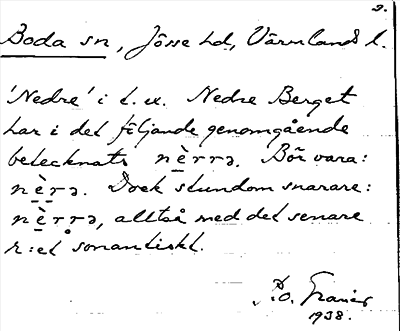 2.
Boda sn, Jösse hd, Värmlands l.
'Nedre' i t. ex. Nedre Berget
har i det följande genomgående
betecknats nè̱rrə. Bör vara:
nè̱ṟə. Dock stundom snarare:
nè̱r̊rə, alltså med det senare
r:et sonantiskt.
1938.